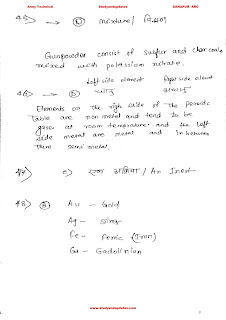 Army Technical Studyandupdates DANAPUR ARO
45) → (D) mixture/ मिश्रण
Gunpowder consist of sulfur and charcoal
mixed with potassium nitrate.
Left side element Right side element
46) → (D) धातु अधातु
Elements on the right side of the periodic
table are non metal and tend to be
gases at room temperature. and the left
side metal are metal and in between
them semi metal.
47) c) / An Inert
48) (B) Au – Gold
Ag – silver
Fe – Ferric (Iron)
Ga – Gadolinium
www.studyandupdates.com